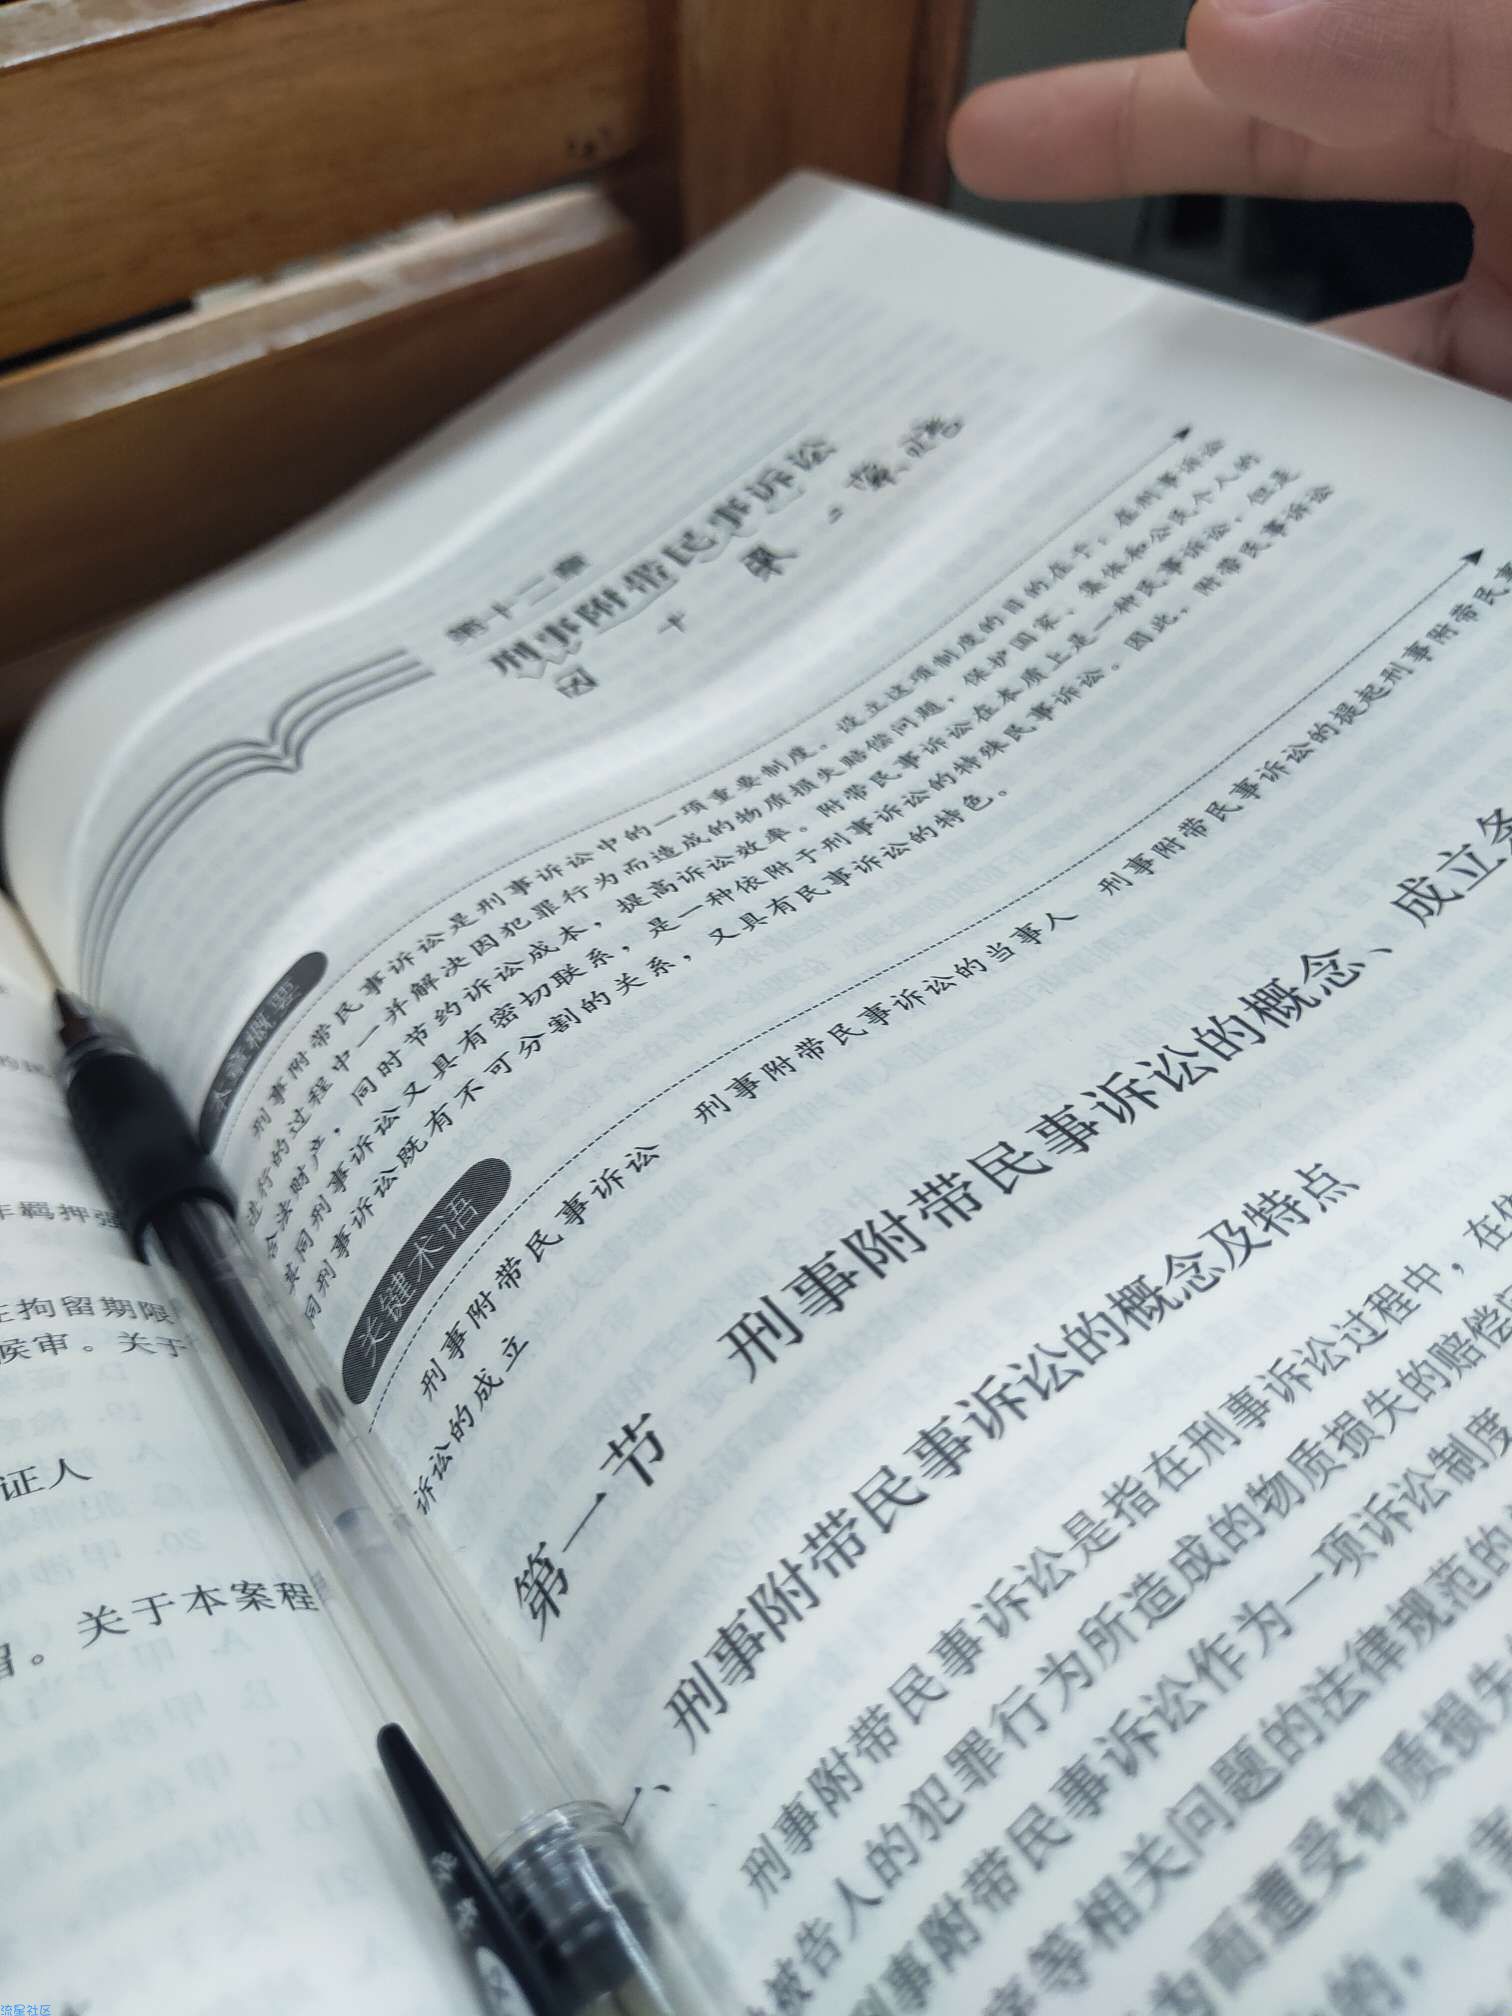 第十二章
刑事附带民事诉讼
本章概要
刑事附带民事诉讼是刑事诉讼中的一项重要制度。设立这项制度的目的在于，在刑事诉讼
进行的过程中一并解决因犯罪行为而造成的物质损失赔偿问题，保护国家、集体和公民个人的
合法财产，同时节约诉讼成本，提高诉讼效率。附带民事诉讼在本质上是一种民事诉讼，但是
其同刑事诉讼又具有密切联系，是一种依附于刑事诉讼的特殊民事诉讼。因此，附带民事诉讼
同刑事诉讼既有不可分割的关系，又具有民事诉讼的特色。
关键术语
刑事附带民事诉讼 刑事附带民事诉讼的当事人 刑事附带民事诉讼的提起刑事附带民事
诉讼的成立
第一节 刑事附带民事诉讼的概念、成立条
一、刑事附带民事诉讼的概念及特点
刑事附带民事诉讼是指在刑事诉讼过程中，在依
被告人的犯罪行为所造成的物质损失的赔偿
刑事附带民事诉讼作为一项诉讼制度
等相关问题的法律规范的
为而遭受物质损失
的，被害
羁押强
在拘留期限
候审。关于
证人
留。关于本案程
流星社区